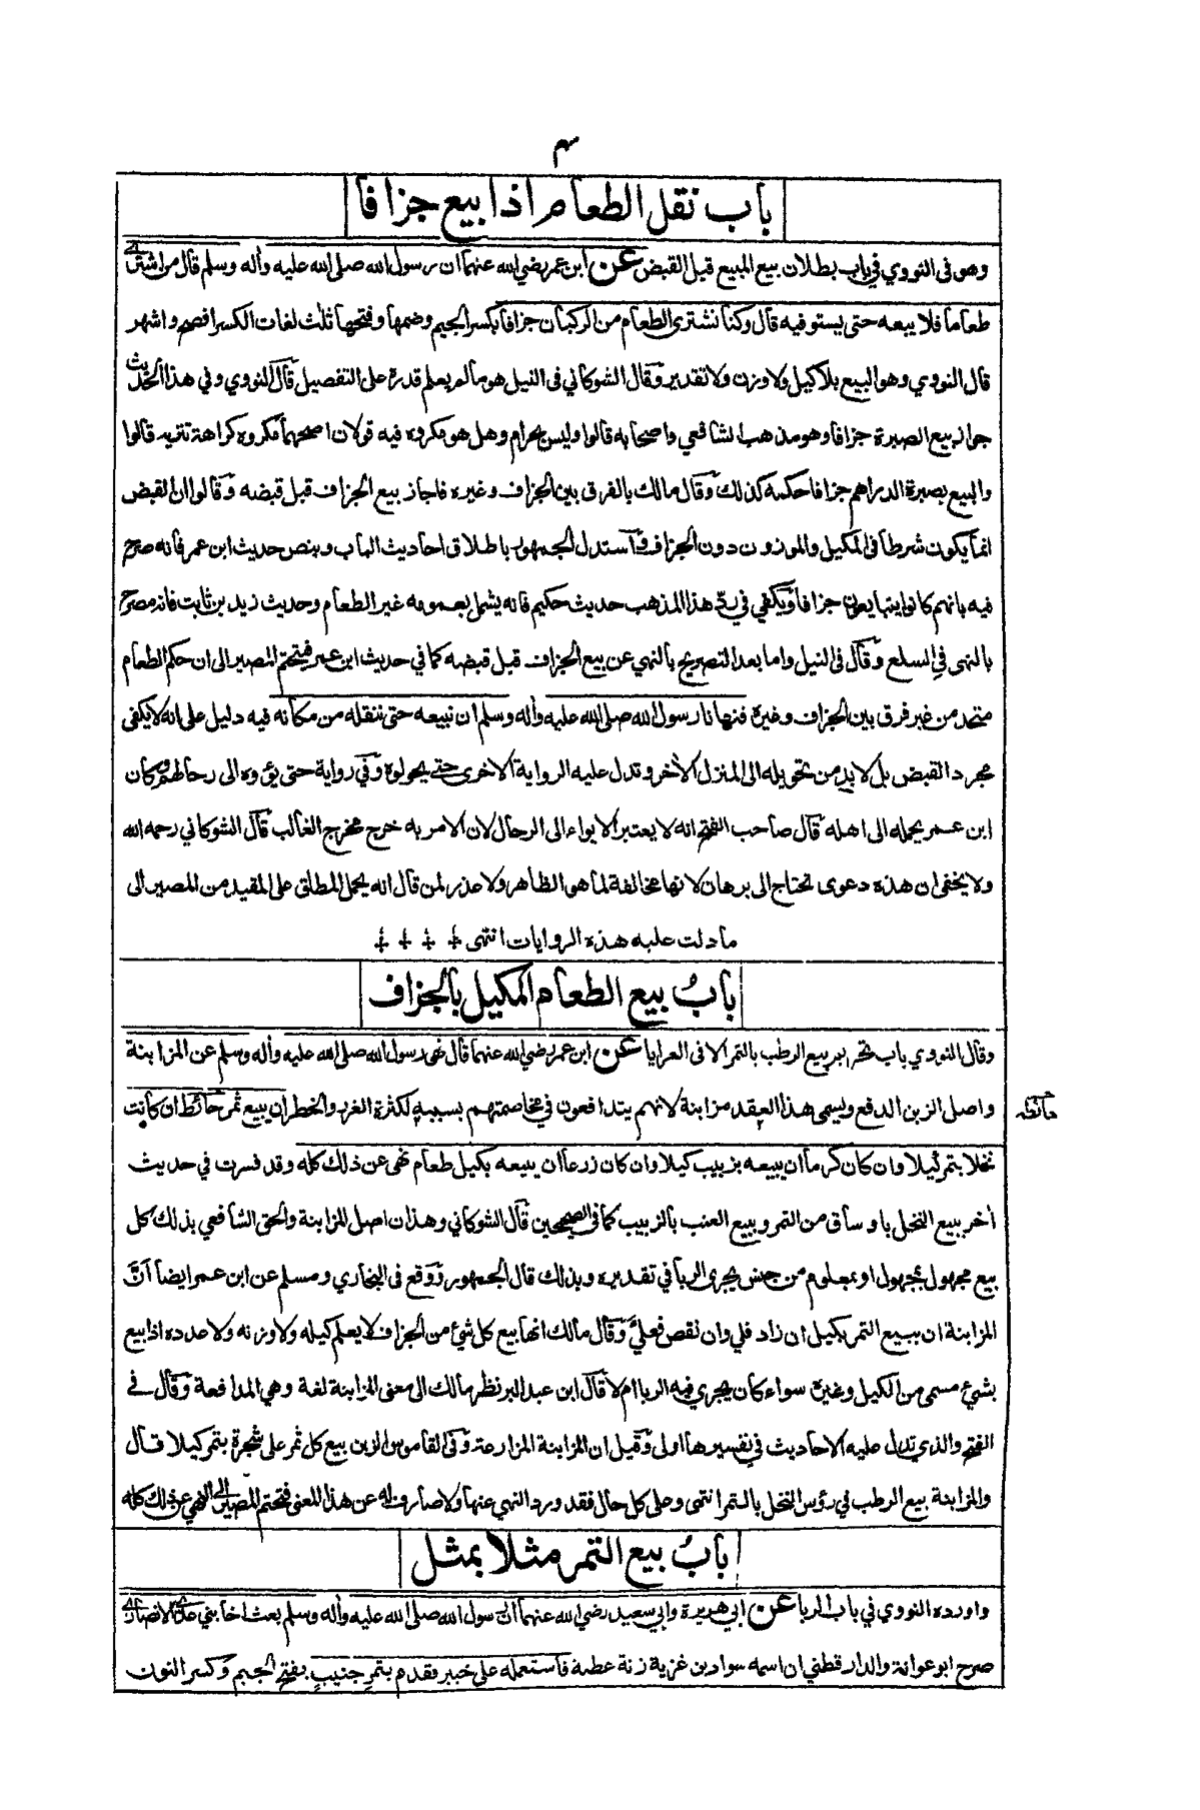 باب نقل الطعام اذا بيع جزافا
وهو فى النووي في باب بطلان بيع المبيع قبل القبض عن ابن عمر رضي الله عنهما ان رسول الله صلى الله عليه وأله وسلم قال من اشترى
طعاما فلا يبعه حتى يستوفيه قال وكنا نشترى الطعام من الركبان جزافا بكسر الجيم وضمها وفتحها ثلث لغات الكسر افصح واشهر
قال النووي وهو البيع بلا كيل ولا وزن ولا تقدير وقال الشوكاني فى النيل هو ما لم يعلم قدره على التفصيل قال النووي وفي هذا الحديث
جواز بيع الصبرة جزافا وهو مذهب الشافعي واصحابه قالوا وليس بحرام وهل هو مكروه فيه قولان اصحهما مكروه كراهة تنزيه قالوا
والبيع بصبرة الدراهم جزافا حكمه كذلك وقال مالك بالفرق بين الجزاف وغيره فاجاز بيع الجزاف قبل قبضه وقالوا ان القبض
انما يكون شرطا فى المكيل والموزون دون الجزاف واستدل الجمهور باطلاق احاديث الباب وبنص حديث ابن عمر فانه صرح
فيه بانهم كانوا يتبايعون جزافا ويكفي في رد هذا المذهب حديث حكيم فانه يشمل بعمومه غير الطعام وحديث زيد بن ثابت فانه مصرح
بالنهى في السلع وقال فى النيل واما بعد التصريح بالنهي عن بيع الجزاف قبل قبضه كما في حديث ابن عمر فيتحتم المصير الى ان حكم الطعام
متحد من غير فرق بين الجزاف وغيره فنهانا رسول الله صلى الله عليه وأله وسلم ان نبيعه حتى ننقله من مكانه فيه دليل على انه لا يكفى
مجرد القبض بل لا بد من تحويله الى المنزل الأخر وتدل عليه الرواية الاخرى حتى يحولوه وفي رواية حتى يؤوه الى رحالهم وكان
ابن عمر يحمله الى اهله قال صاحب الفتح انه لا يعتبر الايواء الى الرحال لان الامر به خرج مخرج الغالب قال الشوكاني رحمه الله
ولا يخفى ان هذه دعوى تحتاج الى برهان لانها مخالفة لما هو الظاهر ولا عذر لمن قال انه يحمل المطلق على المقيد من المصير الى
ما دلت عليه هذه الروايات انتهى
باب بيع الطعام المكيل بالجزاف
وقال النووي باب تحريم بيع الرطب بالتمر الا فى العرايا عن ابن عمر رضي الله عنهما قال نهى رسول الله صلى الله عليه وأله وسلم عن المزابنة
واصل الزبن الدفع ويسمى هذا العقد مزابنة لانهم يتدافعون في مخاصمتهم بسببه لكثرة الغرر والخطر ان يبيع ثمر حائطه ان كانت
نخلا بتمر كيلا وان كان كرما ان يبيعه بزبيب كيلا وان كان زرعا ان يبيعه بكيل طعام نهى عن ذلك كله وقد فسرت في حديث
أخر ببيع النخل باوساق من التمر وبيع العنب بالزبيب كما فى الصحيحين قال الشوكاني وهذان اصل المزابنة والحق الشافعي بذلك كل
بيع مجهول بمجهول او بمعلوم من جنس يجرى الربا في تقديره وبذلك قال الجمهور ووقع فى البخاري ومسلم عن ابن عمر ايضا أن
المزابنة ان يبيع التمر بكيل ان زاد فلي وان نقص فعلي وقال مالك انها بيع كل شئ من الجزاف لا يعلم كيله ولا وزنه ولا عدده اذا بيع
بشئ مسمى من الكيل وغيره سواء كان يجري فيه الربا ام لا قال ابن عبد البر نظر مالك الى معنى المزابنة لغة وهي المدافعة وقال في
الفتح والذي تدل عليه الاحاديث في تفسيرها اولى وقيل ان المزابنة المزارعة وفى القاموس الزبن بيع كل ثمر على شجرة بتمر كيلا قال
والمزابنة بيع الرطب في رؤس النخل بالتمر انتهى وعلى كل حال فقد ورد النهي عنها ولا صارف له عن هذا المعنى فتحتم المصير الى النهي عن ذلك كله
باب بيع التمر مثلا بمثل
واورده النووي في باب الربا عن ابي هريرة وابي سعيد رضي الله عنهما ان رسول الله صلى الله عليه وأله وسلم بعث اخا بني عدي الانصاري
صرح ابو عوانة والدارقطني ان اسمه سواد بن غزية زنة عطية فاستعمله على خيبر فقدم بتمر جنيب بفتح الجيم وكسر النون